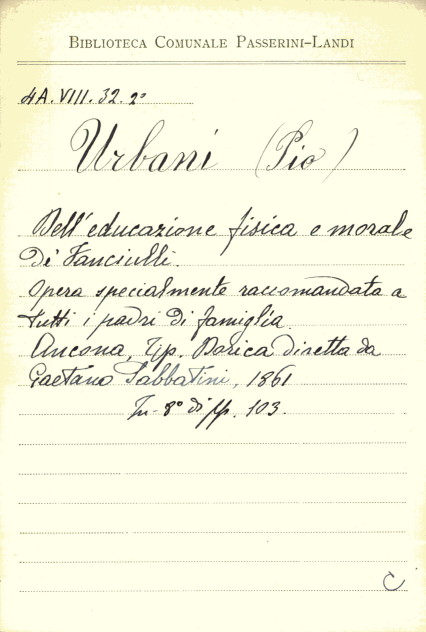 BIBLIOTECA COMUNALE PASSERINI-LANDI
4A.VIII.32.2°
Urbani (Pio)
Dell'educazione fisica e morale
di Fanciulli.
Opera specialmente raccomandata a
tutti i padri di famiglia.
Ancona, Tip. Dorica diretta da
Gaetano Sabbatini, 1861
In-8° di pp. 103.
C